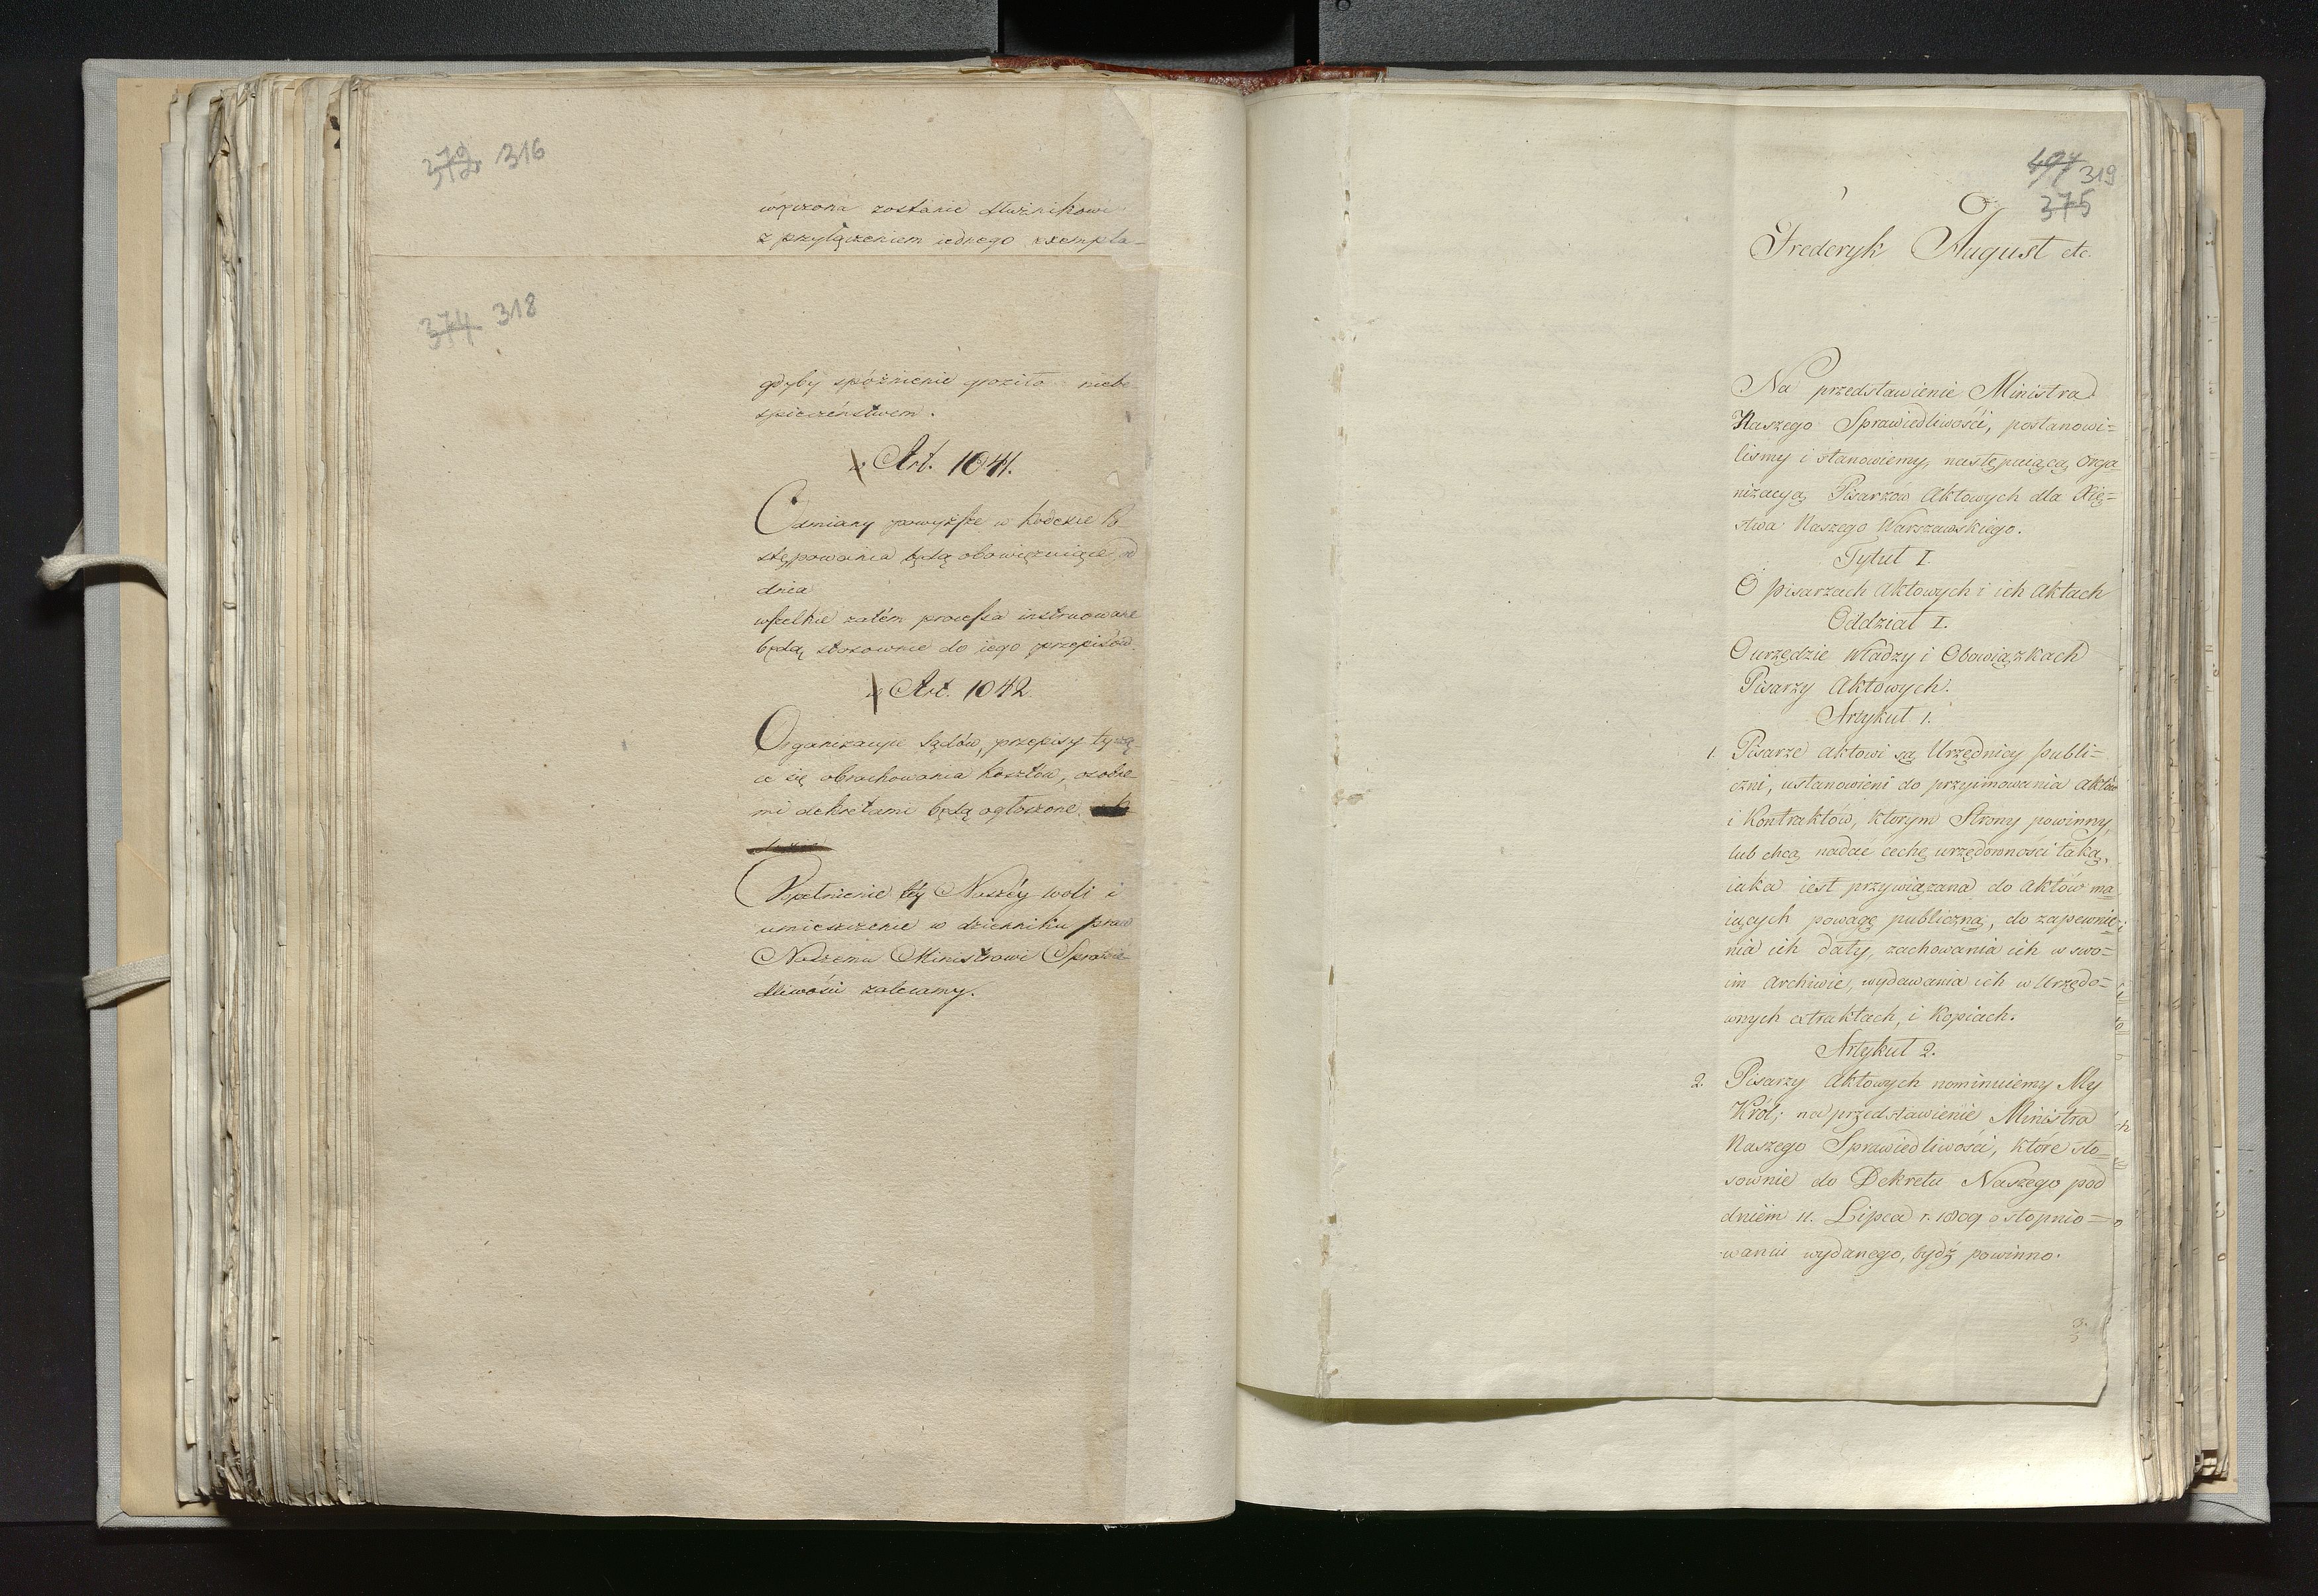 372 316
wręczona zostanie dłużnikowi
z przyłączeniem iednego exempla-
374 318
gdyby spóźnienie groziło niebe
spieczeństwem.
Art. 1041.
Odmiany powyższe w kodexie Po
stępowania będą obowięzuiące od
dnia
wszelkie zatém processa instruowane
będą stosownie do iego przepisów.
Art. 1042
Organizacyie Sądów, przepisy tyczą
ce się obrachowania kosztów, osobne
mi dekretami będą ogłoszone.
Spełnienie téy Naszéy woli i
umieszczenie w dzienniku praw
Naszemu Ministrowi Sprawie
dliwości zalecamy.
319
375
Frederyk August etc.
Na przedstawienie Ministra
Naszego Sprawiedliwości, postanowi=
lismy i stanowiemy, następuiącą Orga
nizacyą Pisarzów Aktowych dla Xię=
stwa Naszego Warszawskiego.
Tytuł I.
O pisarzach Aktowych i ich Aktach
Oddział I.
O urzędzie Władzy i Obowiązkach
Pisarzy Aktowych.
Artykuł 1.
1. Pisarze Aktowi są Urzędnicy publi=
czni, ustanowieni do przyimowania aktów
i Kontraktów, ktorym Strony powinny,
lub chcą nadać cechę urzędowności taką,
iaka iest przywiązana do Aktów ma
iących powagę publiczną, do zapewnie
nia ich daty, zachowania ich w swo=
im Archiwie, wydawania ich w Urzędo=
wnych extraktach, i Kopiach.
Artykuł 2.
2. Pisarzy Aktowych nominuiemy My
Król; na przedstawienie Ministra
Naszego Sprawiedliwości, które sto=
sownie do Dekretu Naszego pod
dniem 11. Lipca r. 1809 o stopnio=
waniu wydanego, bydź powinno.
3.